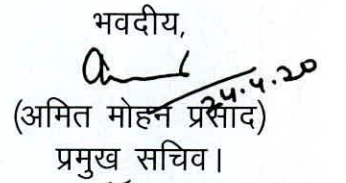 भवदीय,
24.4.20
(अमित मोहन प्रसाद)
प्रमुख सचिव।